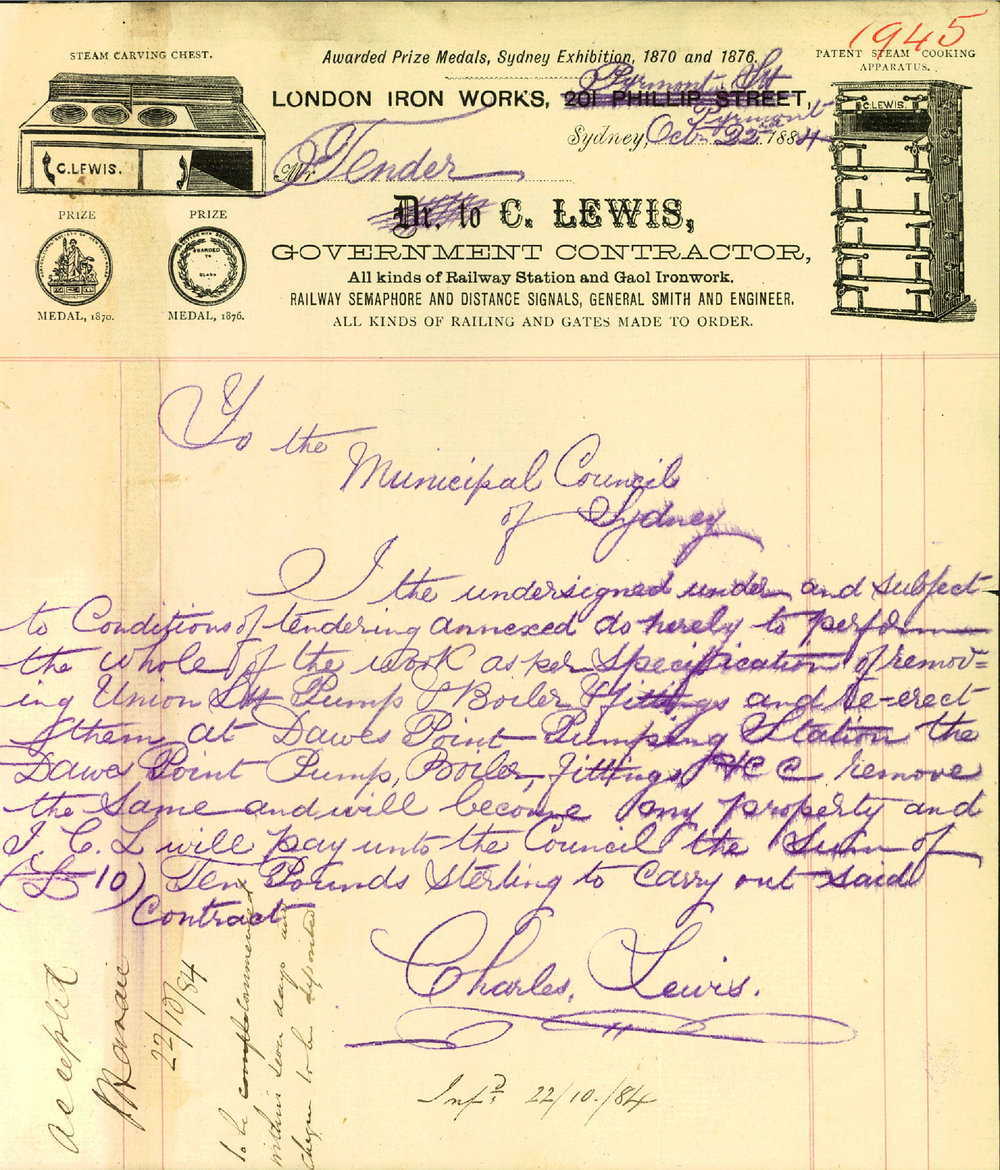 1945
STEAM CARVING CHEST.
Awarded Prize Medals, Sydney Exhibition, 1870 and 1876.
PATENT STEAM COOKING
APPARATUS.
Pyrmont St
LONDON IRON WORKS, 201 PHILLIP STREET,
Pyrmont
Sydney, Oct 22nd 1884
C. LEWIS.
C. LEWIS.
Mr Tender
Dr. to C. LEWIS,
PRIZE
MEDAL, 1870.
PRIZE
MEDAL, 1876.
AWARDED
TO
GOVERNMENT CONTRACTOR,
All kinds of Railway Station and Gaol Ironwork.
RAILWAY SEMAPHORE AND DISTANCE SIGNALS, GENERAL SMITH AND ENGINEER.
ALL KINDS OF RAILING AND GATES MADE TO ORDER.
To the
Municipal Council
of Sydney
I the undersigned under and subject
to Conditions of tendering annexed do herely to perform
the whole of the work as per Specification of remov=
ing Union St Pump & Boiler & fittings and Re-erect
them at Dawes Point Pumping Station the
Dawes Point Pump, Boiler, fittings, &CC remove
the same and will become my property and
I. C. L will pay unto the Council the Sum of
(£10) Ten Pounds Sterling to Carry out said
Contract
Charles, Lewis.
Accepted
22/10/84
to be commenced
within seven days and
cheque to be deposited
Infd 22/10/84